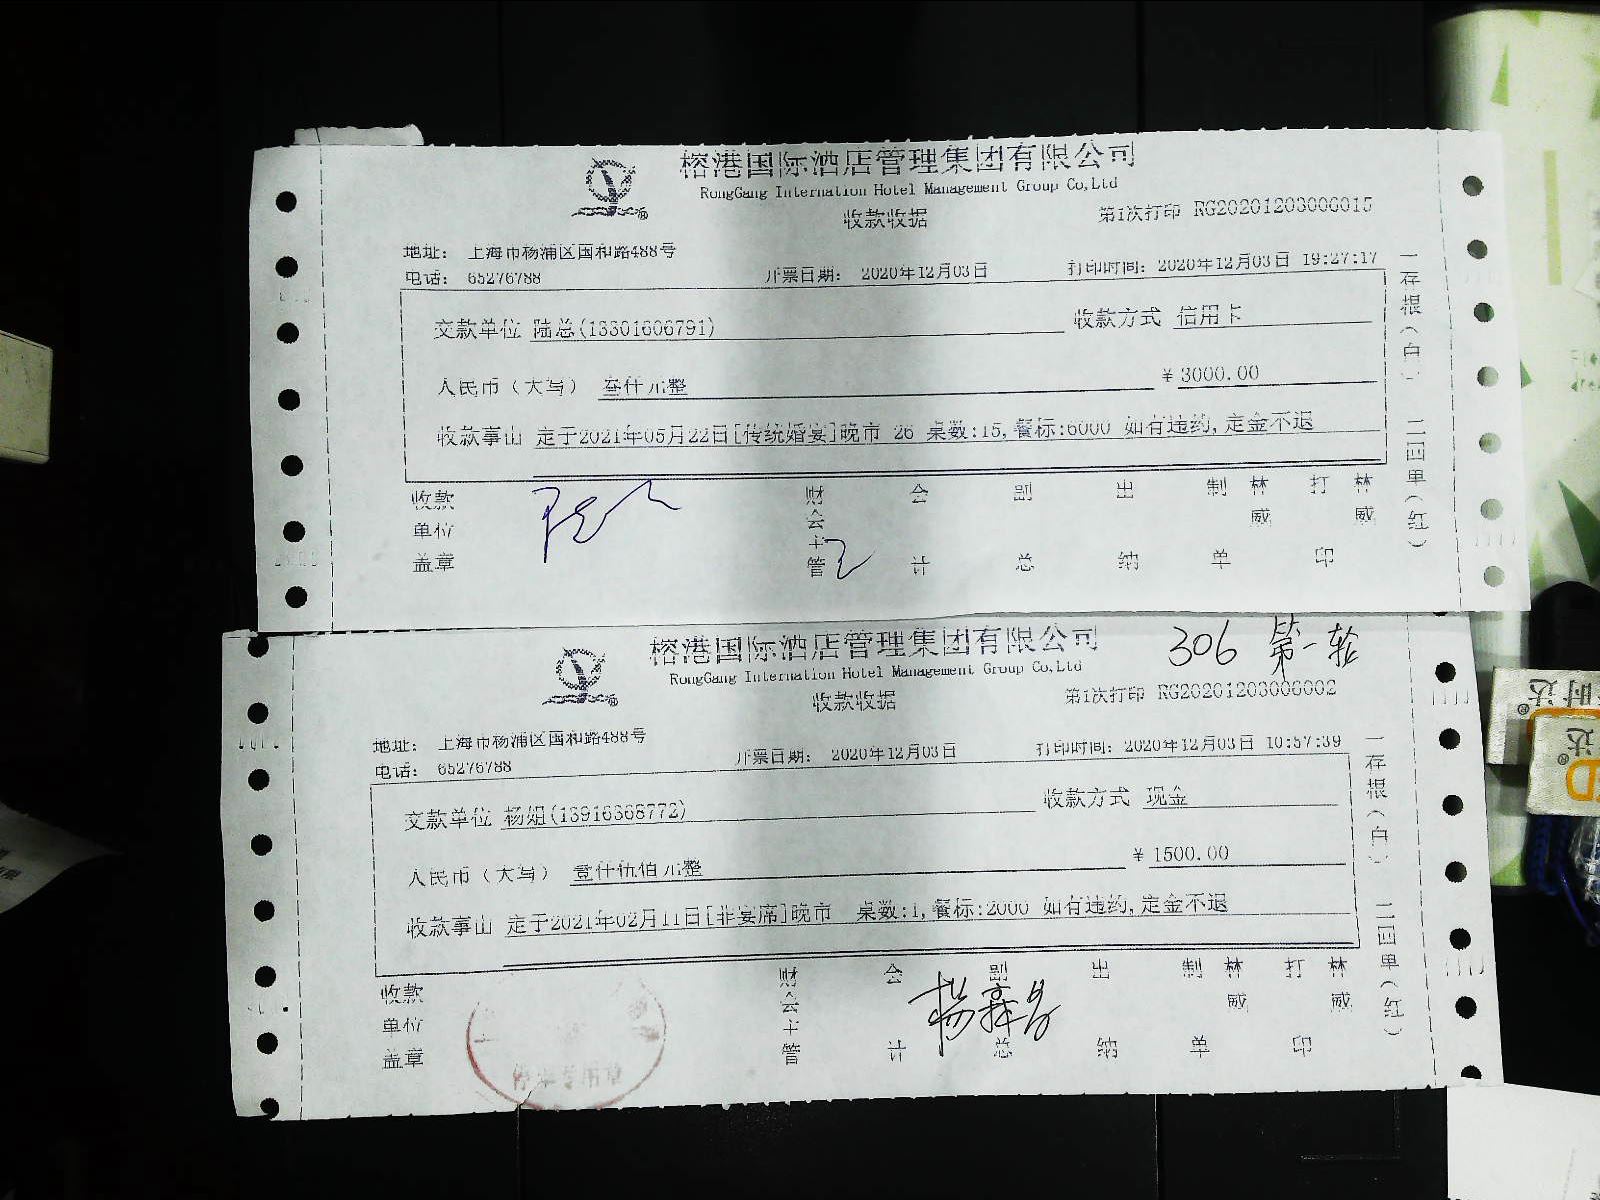 榕港国际酒店管理集团有限公司
RongGang Internation Hotel Management Group Co,Ltd
收款收据
第1次打印 RG20201203006015
地址： 上海市杨浦区国和路488号
电话： 65276788
开票日期： 2020年12月03日
打印时间：2020年12月03日 19:27:17
交款单位 陆总(13301606791)
收款方式 信用卡
人民币（大写） 叁仟元整
¥ 3000.00
收款事由 定于2021年05月22日[传统婚宴]晚市 26 桌数:15,餐标:6000 如有违约,定金不退
收款单位盖章
财会主管
会计
副总
出纳
制单 林威
打印 林威
一存根（白） 二四单（红）
榕港国际酒店管理集团有限公司
RongGang Internation Hotel Management Group Co,Ltd
306 第一轮
收款收据
第1次打印 RG20201203006002
地址： 上海市杨浦区国和路488号
电话： 65276788
开票日期： 2020年12月03日
打印时间：2020年12月03日 10:57:39
交款单位 杨姐(13916368772)
收款方式 现金
人民币（大写） 壹仟伍佰元整
¥ 1500.00
收款事由 定于2021年02月11日[非宴席]晚市 桌数:1,餐标:2000 如有违约,定金不退
收款单位盖章
财会主管
会计
副总
出纳
制单 林威
打印 林威
一存根（白） 二四单（红）
专用章
时达®
达®